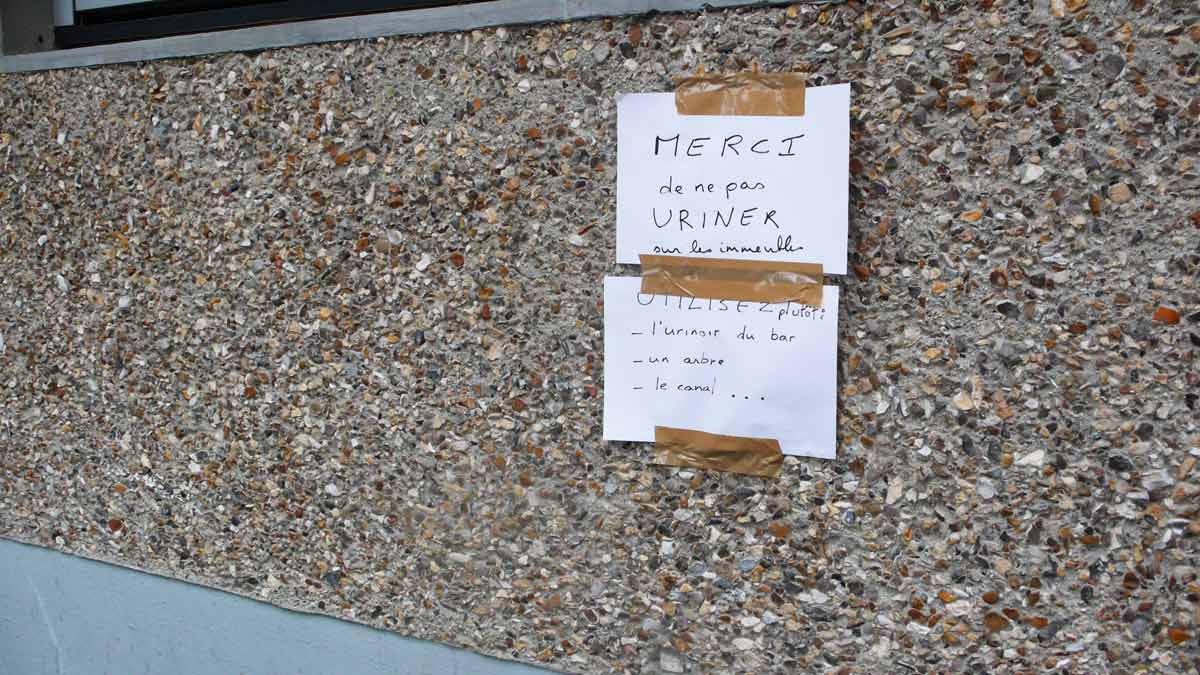 MERCI
de ne pas
URINER
sur les immeubles
UTILISEZ plutôt:
- l'urinoir du bar
- un arbre
- le canal ...